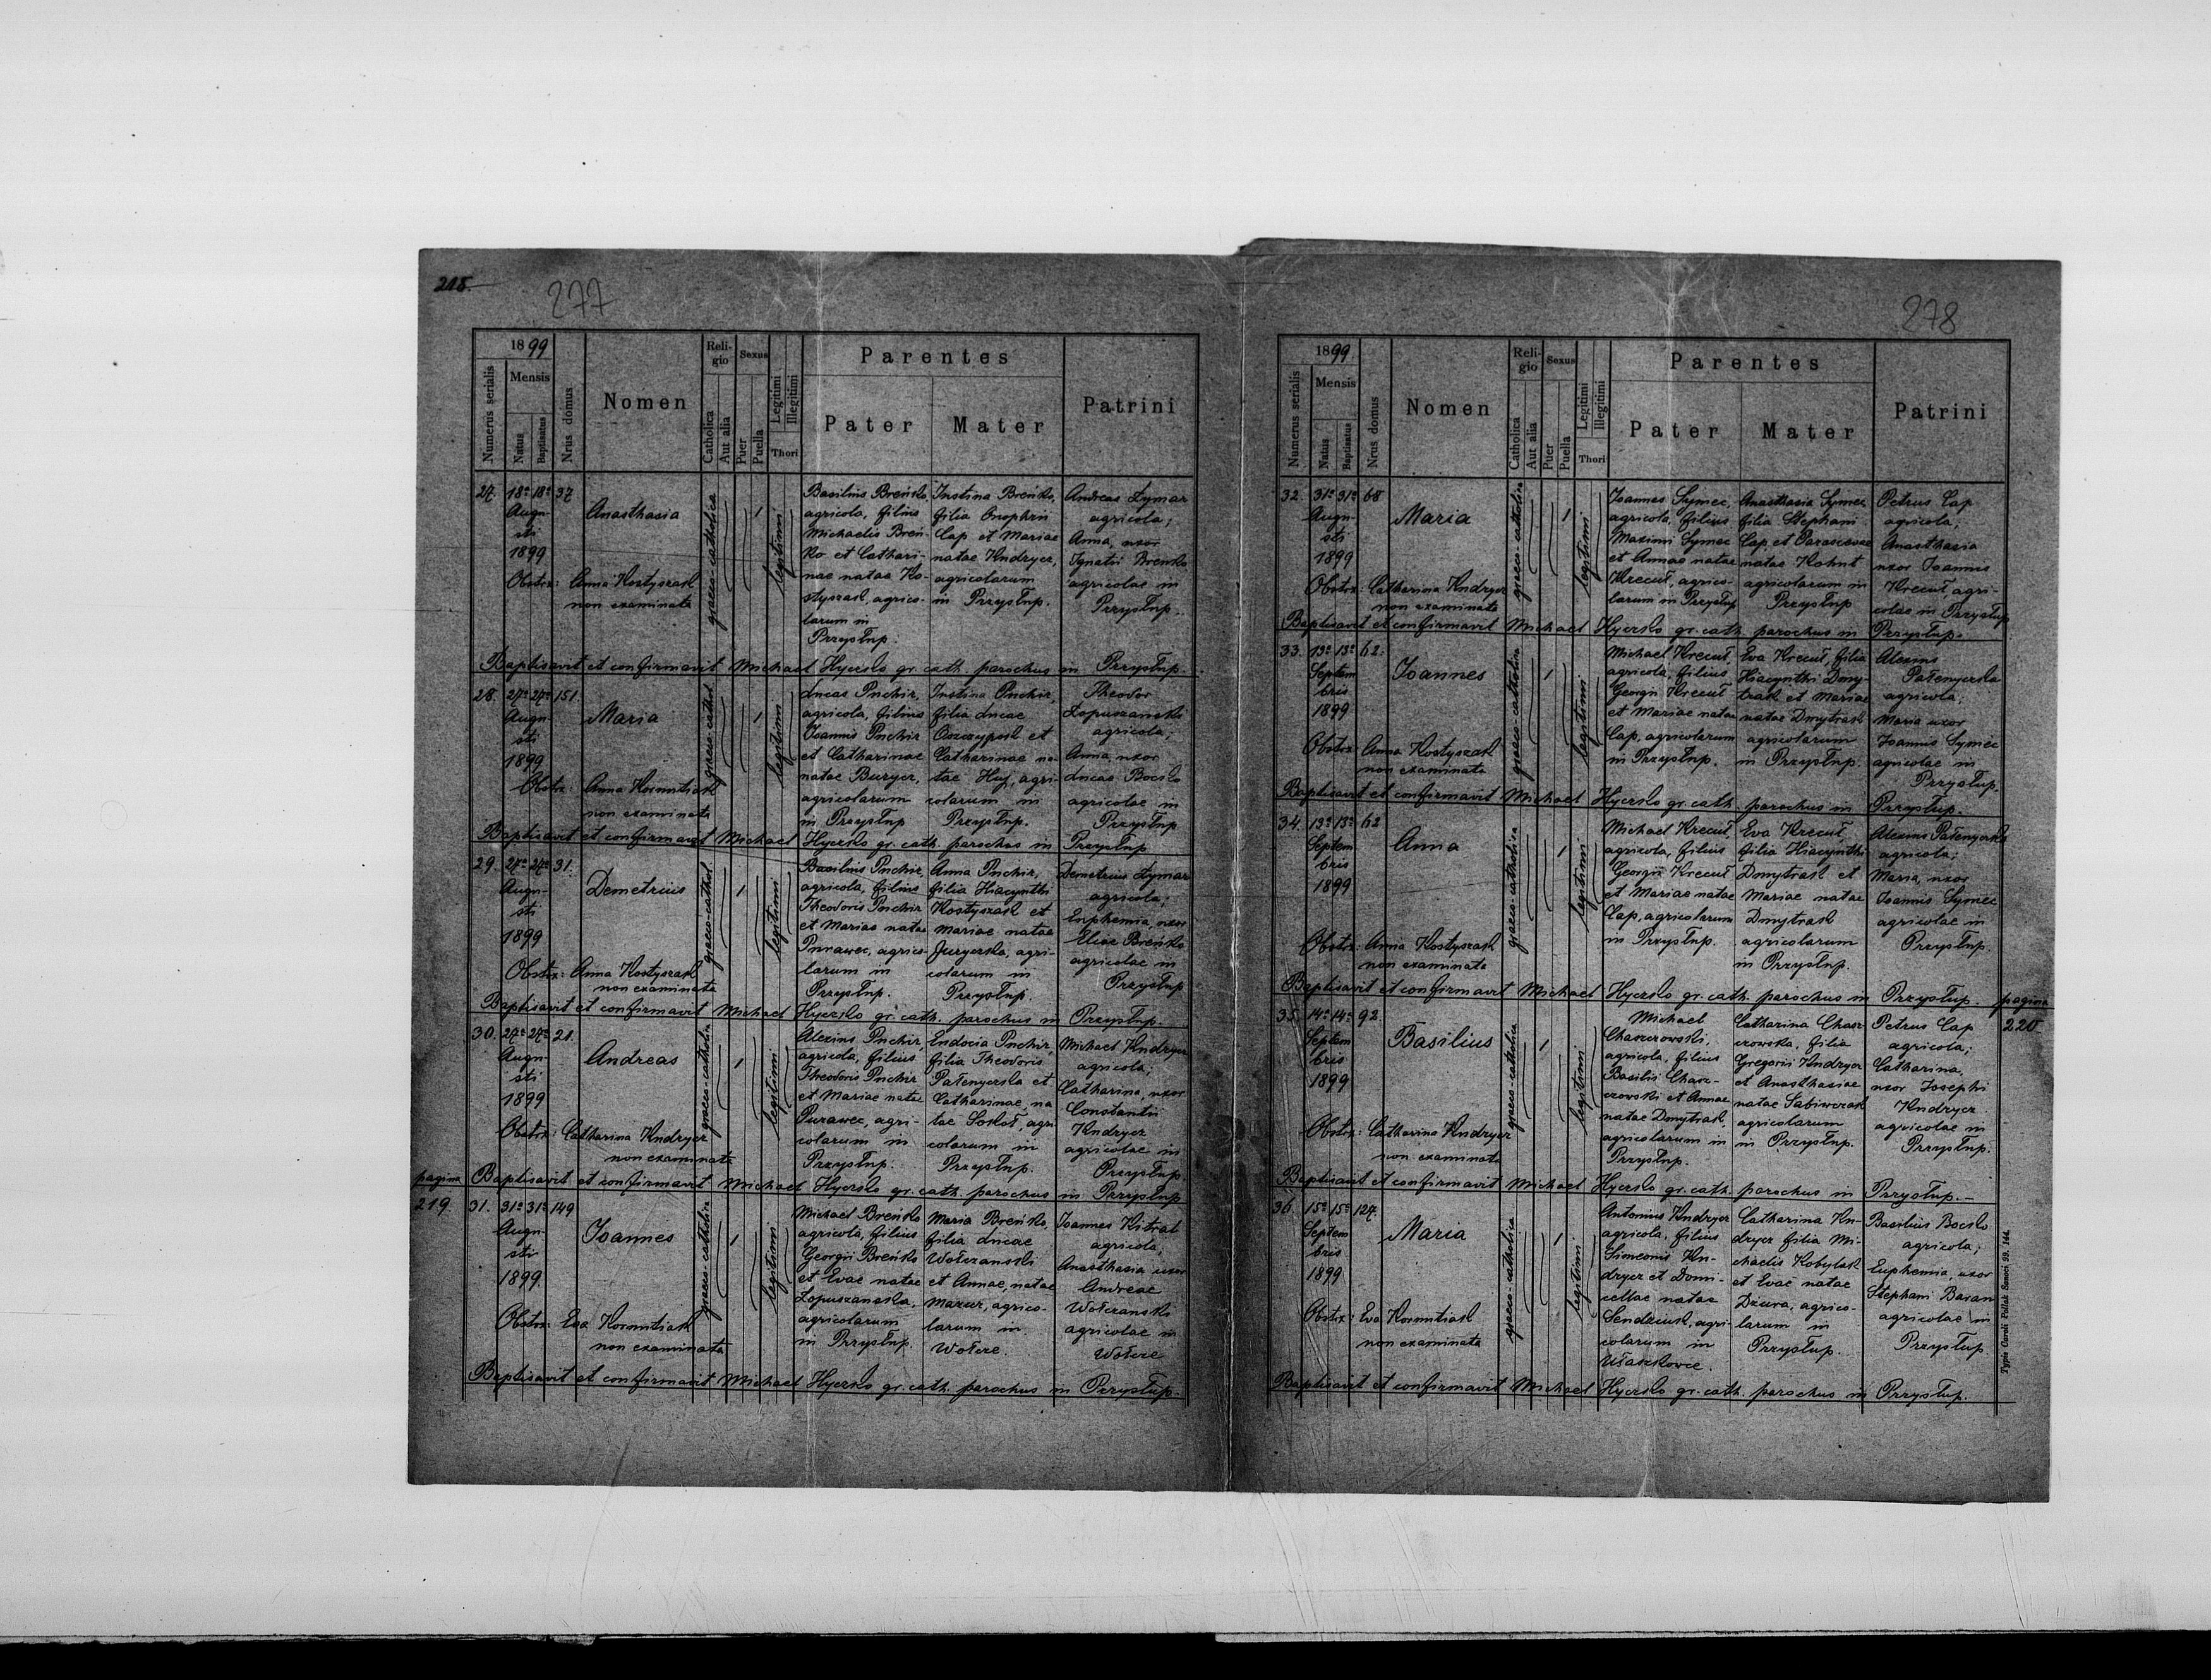 218.
277
1899
Numerus serialis
Mensis
Natus
Baptisatus
Nrus domus
Nomen
Reli-
gio
Catholica
Aut alia
Sexus
Puer
Puella
Legitimi
Illegitimi
Thori
Parentes
Pater
Mater
Patrini
27. 18a 18a 37
Augu-
sti
1899
Anasthasia
graeco-catholica
1
legitimi
Obstx: Anna Kostyszak
non examinata
Basilius Breńko,
agricola, filius
Michaelis Breń-
ko et Cathari-
nae natae Ko-
styszak, agrico-
larum in
Przysłup.
Justina Breńko,
filia Onophrii
Cap et Mariae
natae Kndrycz,
agricolarum
in Przysłup.
Andreas Dymar
agricola;
Anna, uxor
Ignatii Breńko
agricolae in
Przysłup.
Baptisavit et confirmavit Michael Hyczko gr. cath. parochus in Przysłup.
28. 27a 27a 151.
Augu-
sti
1899
Maria
graeco-cathol
1
legitimi
Obstx: Anna Kosmitiak
non examinata
Lucas Puchir,
agricola, filius
Joannis Puchir
et Catharinae
natae Burycz,
agricolarum
in Przysłup
Justina Puchir,
filia Lucae
Oszczypok et
Catharinae na-
tae Huj, agri-
colarum in
Przysłup.
Theodor
Łopuszanski
agricola;
Anna, uxor
Lucae Bocko
agricolae in
Przysłup
Baptisavit et confirmavit Michael Hyczko gr. cath. parochus in Przysłup
29. 27a 27a 31.
Augu-
sti
1899
Demetrius
graeco-cathol
1
legitimi
Obstx: Anna Kostyszak
non examinata
Basilius Puchir,
agricola, filius
Theodoris Puchir
et Mariae natae
Purawec, agrico-
larum in
Przysłup.
Anna Puchir,
filia Hiacynthi
Kostyszak et
Mariae natae
Juryczko, agri-
colarum in
Przysłup
Demetrius Dymar
agricola;
Euphemia, uxor
Eliae Breńko
agricolae in
Przysłup
Baptisavit et confirmavit Michael Hyczko gr. cath. parochus in Przysłup.
30. 27a 27a 21.
Augu-
sti
1899
Andreas
graeco-catholica
1
legitimi
Obstx: Catharina Kndrycz
non examinata
Alexius Puchir,
agricola, filius
Theodoris Puchir
et Mariae natae
Purawec, agri-
colarum in
Przysłup.
Eudocia Puchir,
filia Theodoris
Pałenyczka et
Catharinae, na
tae Sokoł, agri
colarum in
Przysłup.
Michael Kndrycz
agricola;
Catharina, uxor
Constantii
Kndrycz
agricolae in
Przysłup
pagina Baptisavit et confirmavit Michael Hyczko gr. cath. parochus in Przysłup
219. 31. 31a 31a 149
Augu-
sti
1899
Joannes
graeco-catholica
1
legitimi
Obstx: Eva Kosmitiak
non examinata
Michael Breńko
agricola, filius
Georgii Breńko
et Evae natae
Łopuszanska,
agricolarum
in Przysłup.
Maria Breńko,
filia Lucae
Wołczanski
et Annae, natae
Mazur, agrico-
larum in
Wołcze.
Joannes Kitrat
agricola,
Anasthasia uxor
Andreae
Wołczanski
agricolae in
Wołcze
Baptisavit et confirmavit Michael Hyczko gr. cath. parochus in Przysłup.
278
1899
Numerus serialis
Mensis
Natus
Baptisatus
Nrus domus
Nomen
Reli-
gio
Catholica
Aut alia
Sexus
Puer
Puella
Legitimi
Illegitimi
Thori
Parentes
Pater
Mater
Patrini
32. 31a 31a 68
Augu-
sti
1899
Maria
graeco-catholica
1
legitimi
Obstx: Catharina Kndrycz
non examinata
Joannes Symec,
agricola, filius
Maximi Symec
et Annae natae
Krecuł, agrico-
larum in Przysłup
Anasthasia Symec
filia Stephani
Cap et Parascevae
natae Kohut
agricolarum in
Przysłup
Petrus Cap
agricola;
Anasthasia
uxor Joannis
Krecuł, agri-
colae in Przysłup
Baptisavit et confirmavit Michael Hyczko gr. cath. parochus in Przysłup.
33. 13a 13a 62.
Septem
bris
1899
Joannes
graeco-catholica
1
legitimi
Obstx: Anna Kostyszak
non examinata
Michael Krecuł,
agricola, filius
Georgii Krecuł
et Mariae natae
Cap, agricolarum
in Przysłup.
Eva Krecuł, filia
Hiacynthi Dmy-
trak et Mariae
natae Dmytrak
agricolarum
in Przysłup.
Alexius
Pałenyczka
agricola;
Maria uxor
Joannis Symec
agricolae in
Przysłup.
Baptisavit et confirmavit Michael Hyczko gr. cath. parochus in Przysłup.
34. 13a 13a 62
Septem
bris
1899
Anna
graeco-catholica
1
legitimi
Obstx: Anna Kostyszak
non examinata
Michael Krecuł,
agricola, filius
Georgii Krecuł
et Mariae natae
Cap, agricolarum
in Przysłup.
Eva Krecuł,
filia Hiacynthi
Dmytrak et
Mariae natae
Dmytrak
agricolarum
in Przysłup.
Alexius Pałenyczka
agricola;
Maria, uxor
Joannis Symec
agricolae in
Przysłup.
Baptisavit et confirmavit Michael Hyczko gr. cath. parochus in Przysłup. pagina
220
35. 14a 14a 92.
Septem
bris
1899
Basilius
graeco-catholica
1
legitimi
Obstx: Catharina Kndrycz
non examinata
Michael
Chaszczowski,
agricola, filius
Basilii Chasz-
czowski et Annae
natae Dmytrak,
agricolarum in
Przysłup.
Catharina Chasz
czowska, filia
Gregorii Kndrycz
et Anasthasiae
natae Sabiwczak
agricolarum
in Przysłup.
Petrus Cap
agricola;
Catharina,
uxor Josephi
Kndrycz
agricolae in
Przysłup.
Baptisavit et confirmavit Michael Hyczko gr. cath. parochus in Przysłup.-
36. 15a 15a 127.
Septem
bris
1899
Maria
graeco-catholica
1
legitimi
Obstx: Eva Kosmitiak
non examinata
Antonius Kndrycz
agricola, filius
Simeonis Kn-
drycz et Domi-
cellae natae
Sendziuk, agri-
colarum in
Utaszkowce.
Catharina Kn-
drycz filia Mi-
chaelis Kobylak
et Evae natae
Dziura, agrico-
larum in
Przysłup.
Basilius Bocko
agricola;
Euphemia, uxor
Stephani Baran
agricolae in
Przysłup
Baptisavit et confirmavit Michael Hyczko gr. cath. parochus in Przysłup.
Typis Caroli Pollak Sanoci 99. 144.